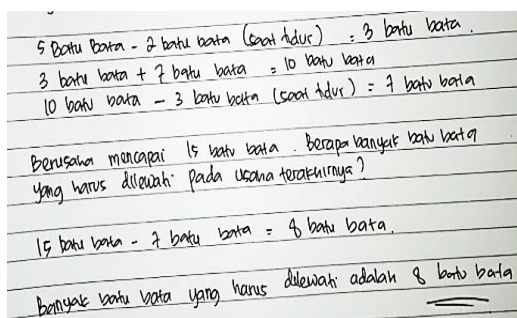 5 Batu Bata - 2 batu bata (saat tidur) = 3 batu bata.
3 batu bata + 7 batu bata = 10 batu bata
10 batu bata - 3 batu bata (saat tidur) = 7 batu bata
Berusaha mencapai 15 batu bata. Berapa banyak batu bata
yang harus dilewati pada usaha terakhirnya?
15 batu bata - 7 batu bata = 8 batu bata.
Banyak batu bata yang harus dilewati adalah 8 batu bata